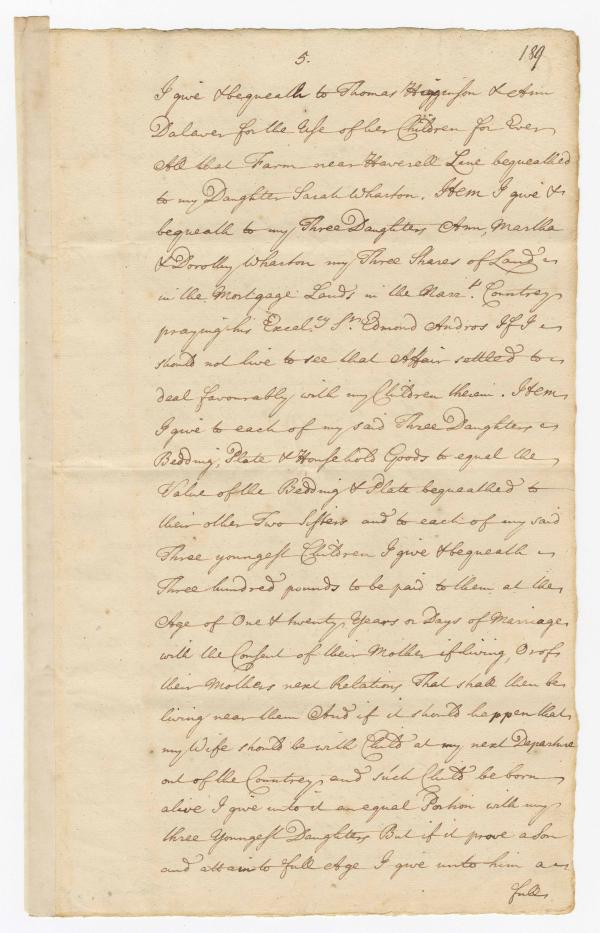 5.
189
I give & bequeath to Thomas Higginson & Ann
Dalaver for the Use of her Children for Ever
All that Farm near Haverell Lane bequeathed
to my Daughter Sarah Wharton. Item I give &
bequeath to my Three Daughters Ann, Martha
& Dorothy Wharton my Three Shares of Land
in the Mortgage Lands in the Narr.t Countrey
praying his Excel.cy Sr. Edmond Andros If I
should not live to see that Affair settled to
deal favourably with my Children therein. Item
I give to each of my said Three Daughters
Bedding, Plate & Household Goods to equal the
Value of the Bedding & Plate bequeathed to
their other Two Sisters and to each of my said
Three youngest Children I give & bequeath
Three hundred pounds to be paid to them at the
Age of One & twenty Years or Days of Marriage
with the Consent of their Mother if living, Or of
their Mothers next Relations That shall then be
living near them And if it should happen that
my Wife should be with Child at my next Departure
out of the Countrey and such Child be born
alive I give unto it an equal Portion with my
three Youngest Daughters But if it prove a Son
and attain to full Age I give unto him a
full